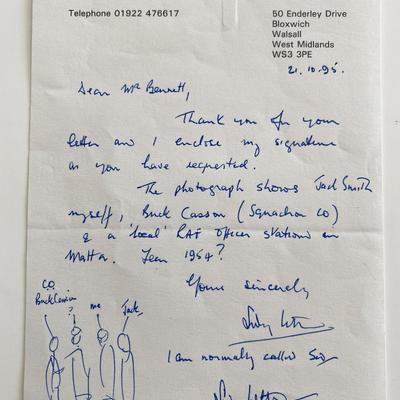 Telephone 01922 476617
50 Enderley Drive
Bloxwich
Walsall
West Midlands
WS3 3PE
21.10.95.
Dear Mr Bennett,
Thank you for your
letter and I enclose my signature
as you have requested.
The photograph shows Jack Smith
myself, Buck Casson (Squadron CO)
& a 'local' RAF officer stationed in
Malta. Year 1954?
Yours sincerely
I am normally called
C.O.
Buck Casson
?
me
Jack